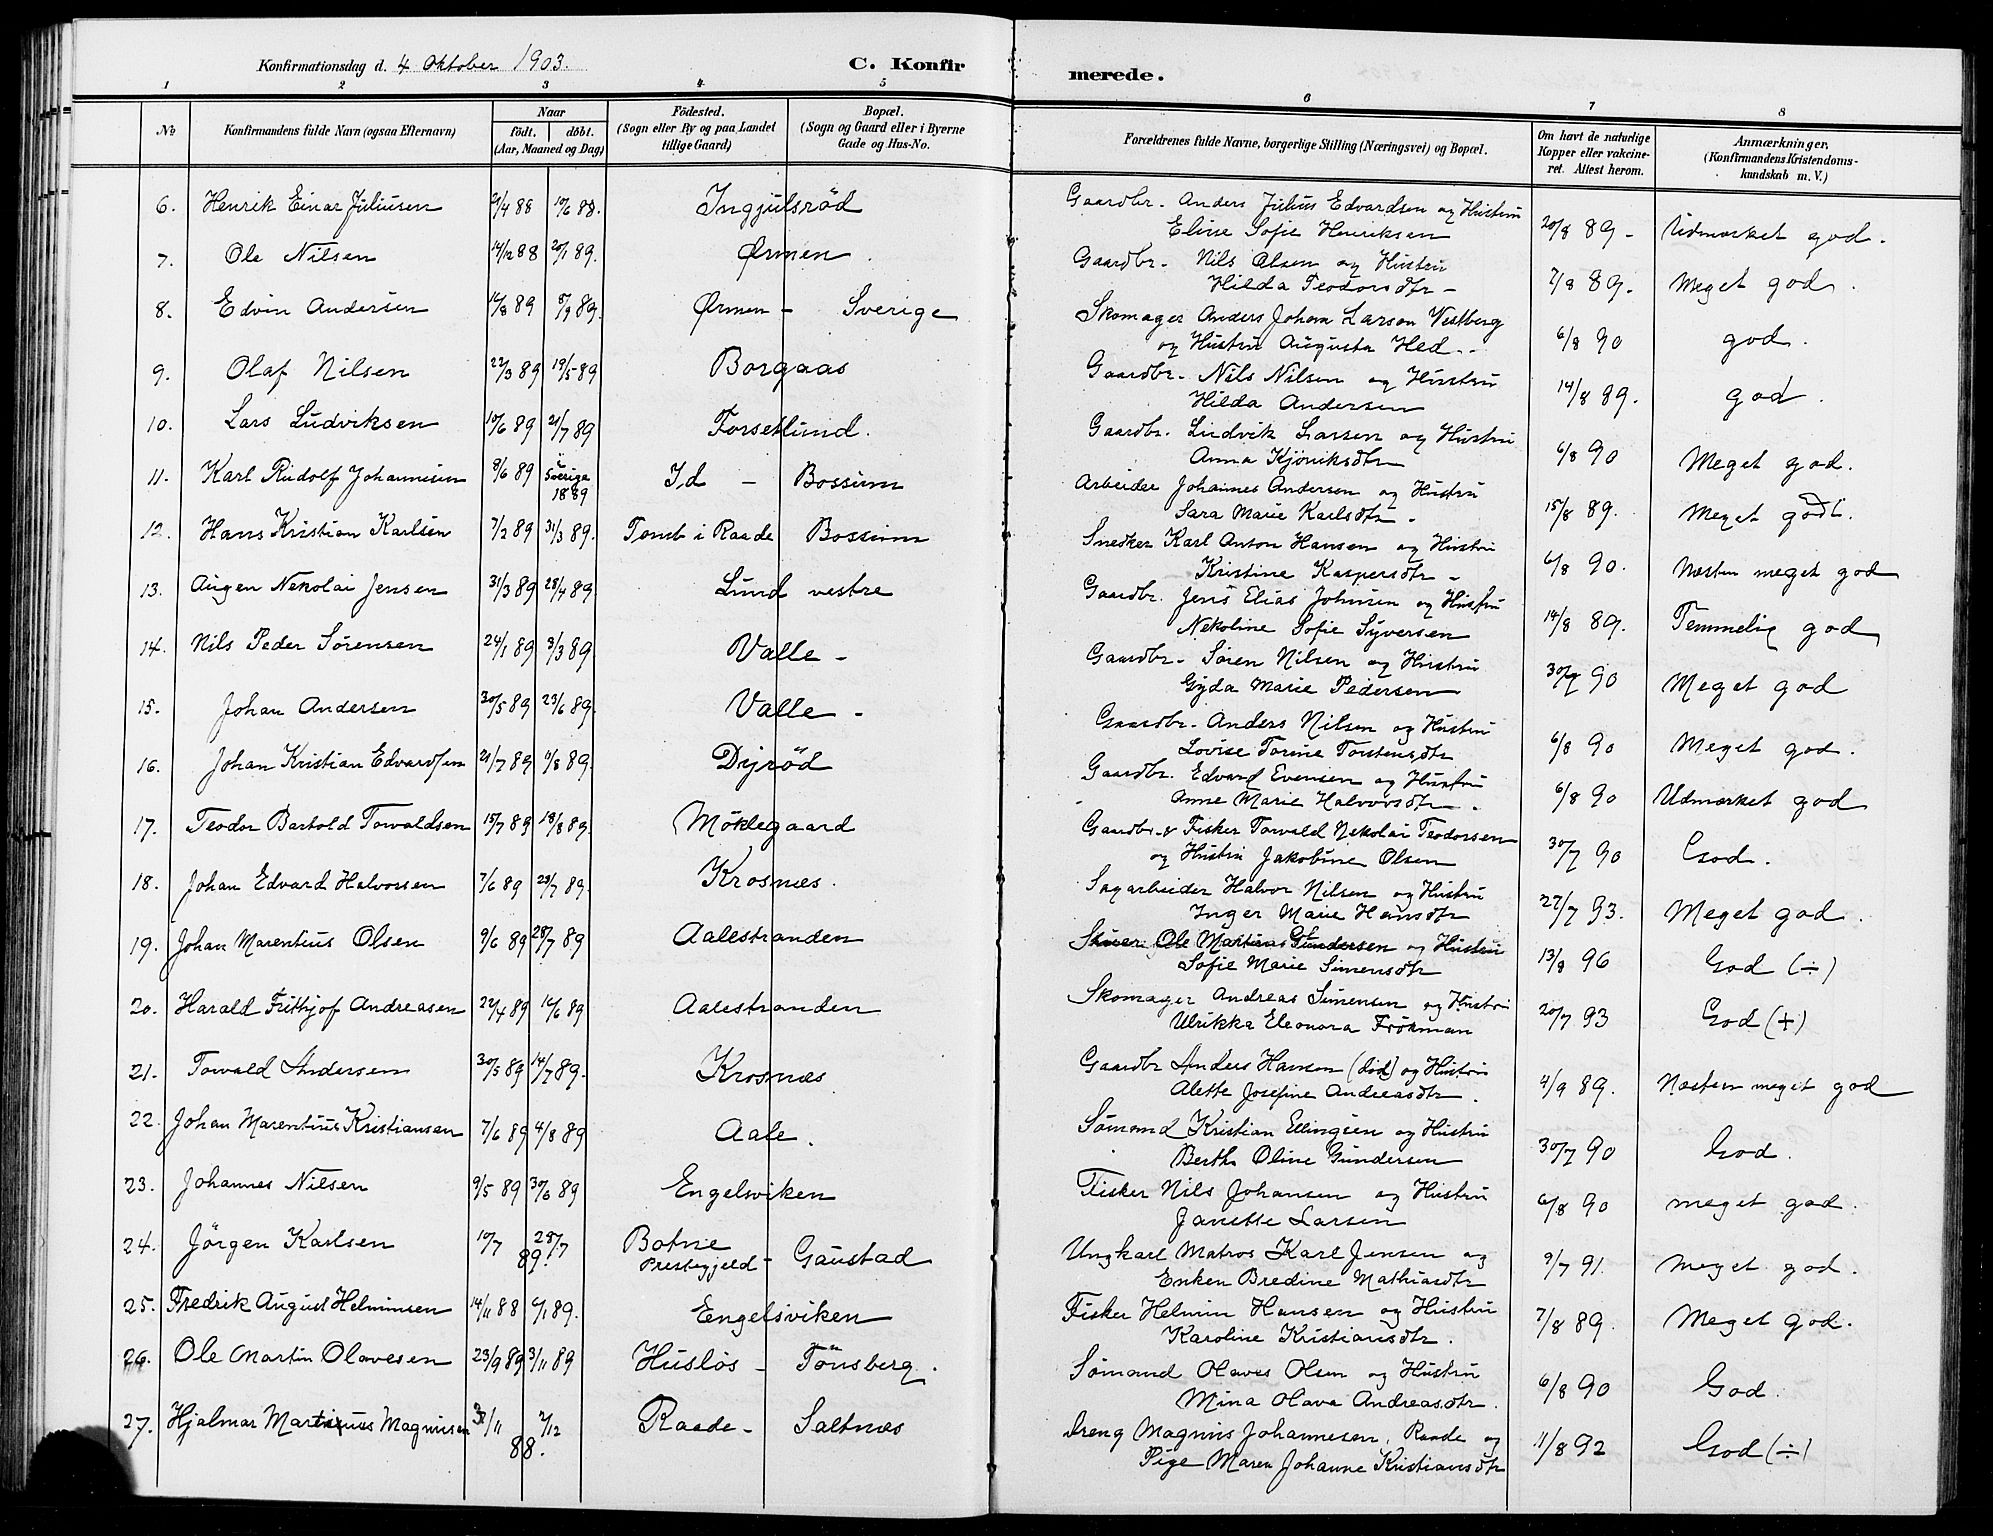 Konfirmationsdag d. 4 Oktober 1903. C. Konfir merede.
1 2 3 4 5 6 7 8
No Konfirmandens fulde Navn (ogsaa Efternavn) Naar födt. döbt. (Aar, Maaned og Dag) Födested. (Sogn eller By og paa Landet tillige Gaard) Bopæl. (Sogn og Gaard eller i Byerne Gade og Hus-No. Forældrenes fulde Navne, borgerlige Stilling (Næringsvei) og Bopæl. Om havt de naturlige Kopper eller vakcineret. Attest herom. Anmærkninger. (Konfirmandens Kristendomskundskab m. V.)
6. Henrik Einar Juliusen 21/4 88 10/6 88. Ingjulsröd Gaardbr. Anders Julius Edvardsen og Hustru
Elise Sofie Henriksen 20/8 89 - Udmærket god.
7. Ole Nilsen 14/12 88 20/1 89. Ørmen. Gaardbr. Nils Olsen og Hustru
Hilda Teodorsdtr - 7/8 89. Meget god.
8. Edvin Andersen 12/8 89 8/9 89. Ørmen - Sverige Skomager Anders Johan Larson Vestberg
og Hustru Augusta Hed. - 6/8 90 god.
9. Olaf Nilsen 22/3 89 19/5 89 Borgaas Gaardbr. Nils Nilsen og Hustru
Hilda Andersen 14/8 89. god.
10. Lars Ludviksen 10/6 89 21/7 89 Forsetlund. Gaardbr. Ludvik Larsen og Hustru
Anna Kjöniksdtr 6/8 90 Meget god.
11. Karl Rudolf Johannesen 8/6 89 i Sverige 1889 Id - Bossum Arbeider Johannes Andersen og Hustru
Sara Marie Karlsdtr - 15/8 89. Meget godt.
12. Hans Kristian Karlsen 7/2 89 31/3 89. Tomb i Raade Bossum Snedker Karl Anton Hansen og Hustru
Kristine Kaspersdtr - 6/8 90. Næsten meget god
13. Augen Nekolai Jensen 31/3 89 28/4 89. Lund vestre Gaardbr. Jens Elias Johnsen og Hustru
Nekoline Sofie Syversen 14/8 89. Temmelig god
14. Nils Peder Sörensen 24/1 89 3/3 89 Valle - Gaardbr. Sören Nilsen og Hustru
Gyda Marie Pedersen 30/7 90 Meget god
15. Johan Andersen 30/5 89 23/6 89. Valle - Gaardbr. Anders Nilsen og Hustru
Lovise Torine Torstensdtr 6/8 90 Meget god.
16. Johan Kristian Edvardsen 21/7 89 11/8 89. Dyröd Gaardbr. Edvard Evensen og Hustru
Anne Marie Halvorsdtr. 6/8 90 Udmærket god
17. Teodor Bartold Torvaldsen 15/7 89 18/8 89. Möklegaard Gaardbr. & Fisker Torvald Nekolai Teodorsen
og Hustru Jakobine Olsen 30/7 90 God.
18. Johan Edvard Halvorsen 7/6 89 28/7 89. Krosnæs. Sagarbeider Halvor Nilsen og Hustru
Inger Marie Hansdtr 27/7 93. Meget god.
19. Johan Marentius Olsen 9/6 89 28/7 89 Aalestranden Ole Gundersen og Hustru
Sofie Marie Simensdtr 13/8 96 God (÷)
20. Harald Frithjof Andreasen 22/4 89 16/6 89 Aalestranden Skomager Andreas Simensen og Hustru
Ulrikka Eleonora Frökman 20/7 93 God (+)
21. Torvald Andersen 30/5 89 14/7 89. Krosnæs Gaardbr Anders Hansen (död) og Hustru
Alette Josefine Andreasdtr. 4/9 89. Næsten meget god
22. Johan Marentius Kristiansen 7/6 89 4/8 89 Aale. Sömand Kristian Ellingsen og Hustru
Berthe Oline Gundersen 30/7 90 God.
23. Johannes Nilsen 9/5 89 30/6 89 Engelsviken Fisker Nils Johansen og Hustru
Janette Larsen 6/8 90 meget god.
24. Jörgen Karlsen 10/7 28/7 89. Botne Prestegjeld - Gaustad Ungkarl Matros Karl Jensen og
Enken Bredine Mathiasdtr 9/7 91. Meget god.
25. Fredrik August Helminsen 14/11 88 6/1 89. Engelsviken Fisker Helmin Hansen og Hustru
Karoline Kristiansdtr. 7/8 89. Meget god.
26. Ole Martin Olavesen 23/9 89 3/11 89 Huslös - Tönsberg. Sömand Olaves Olsen og Hustru
Mina Olava Andreasdtr. 6/8 90 God.
27. Hjalmar Martinus Magnusen /11 2/12 88. Raade - Saltnæs Dreng Magnus Johannesen, Raade og
Pige Maren Johanne Kristiansdtr 11/8 92 God (÷)